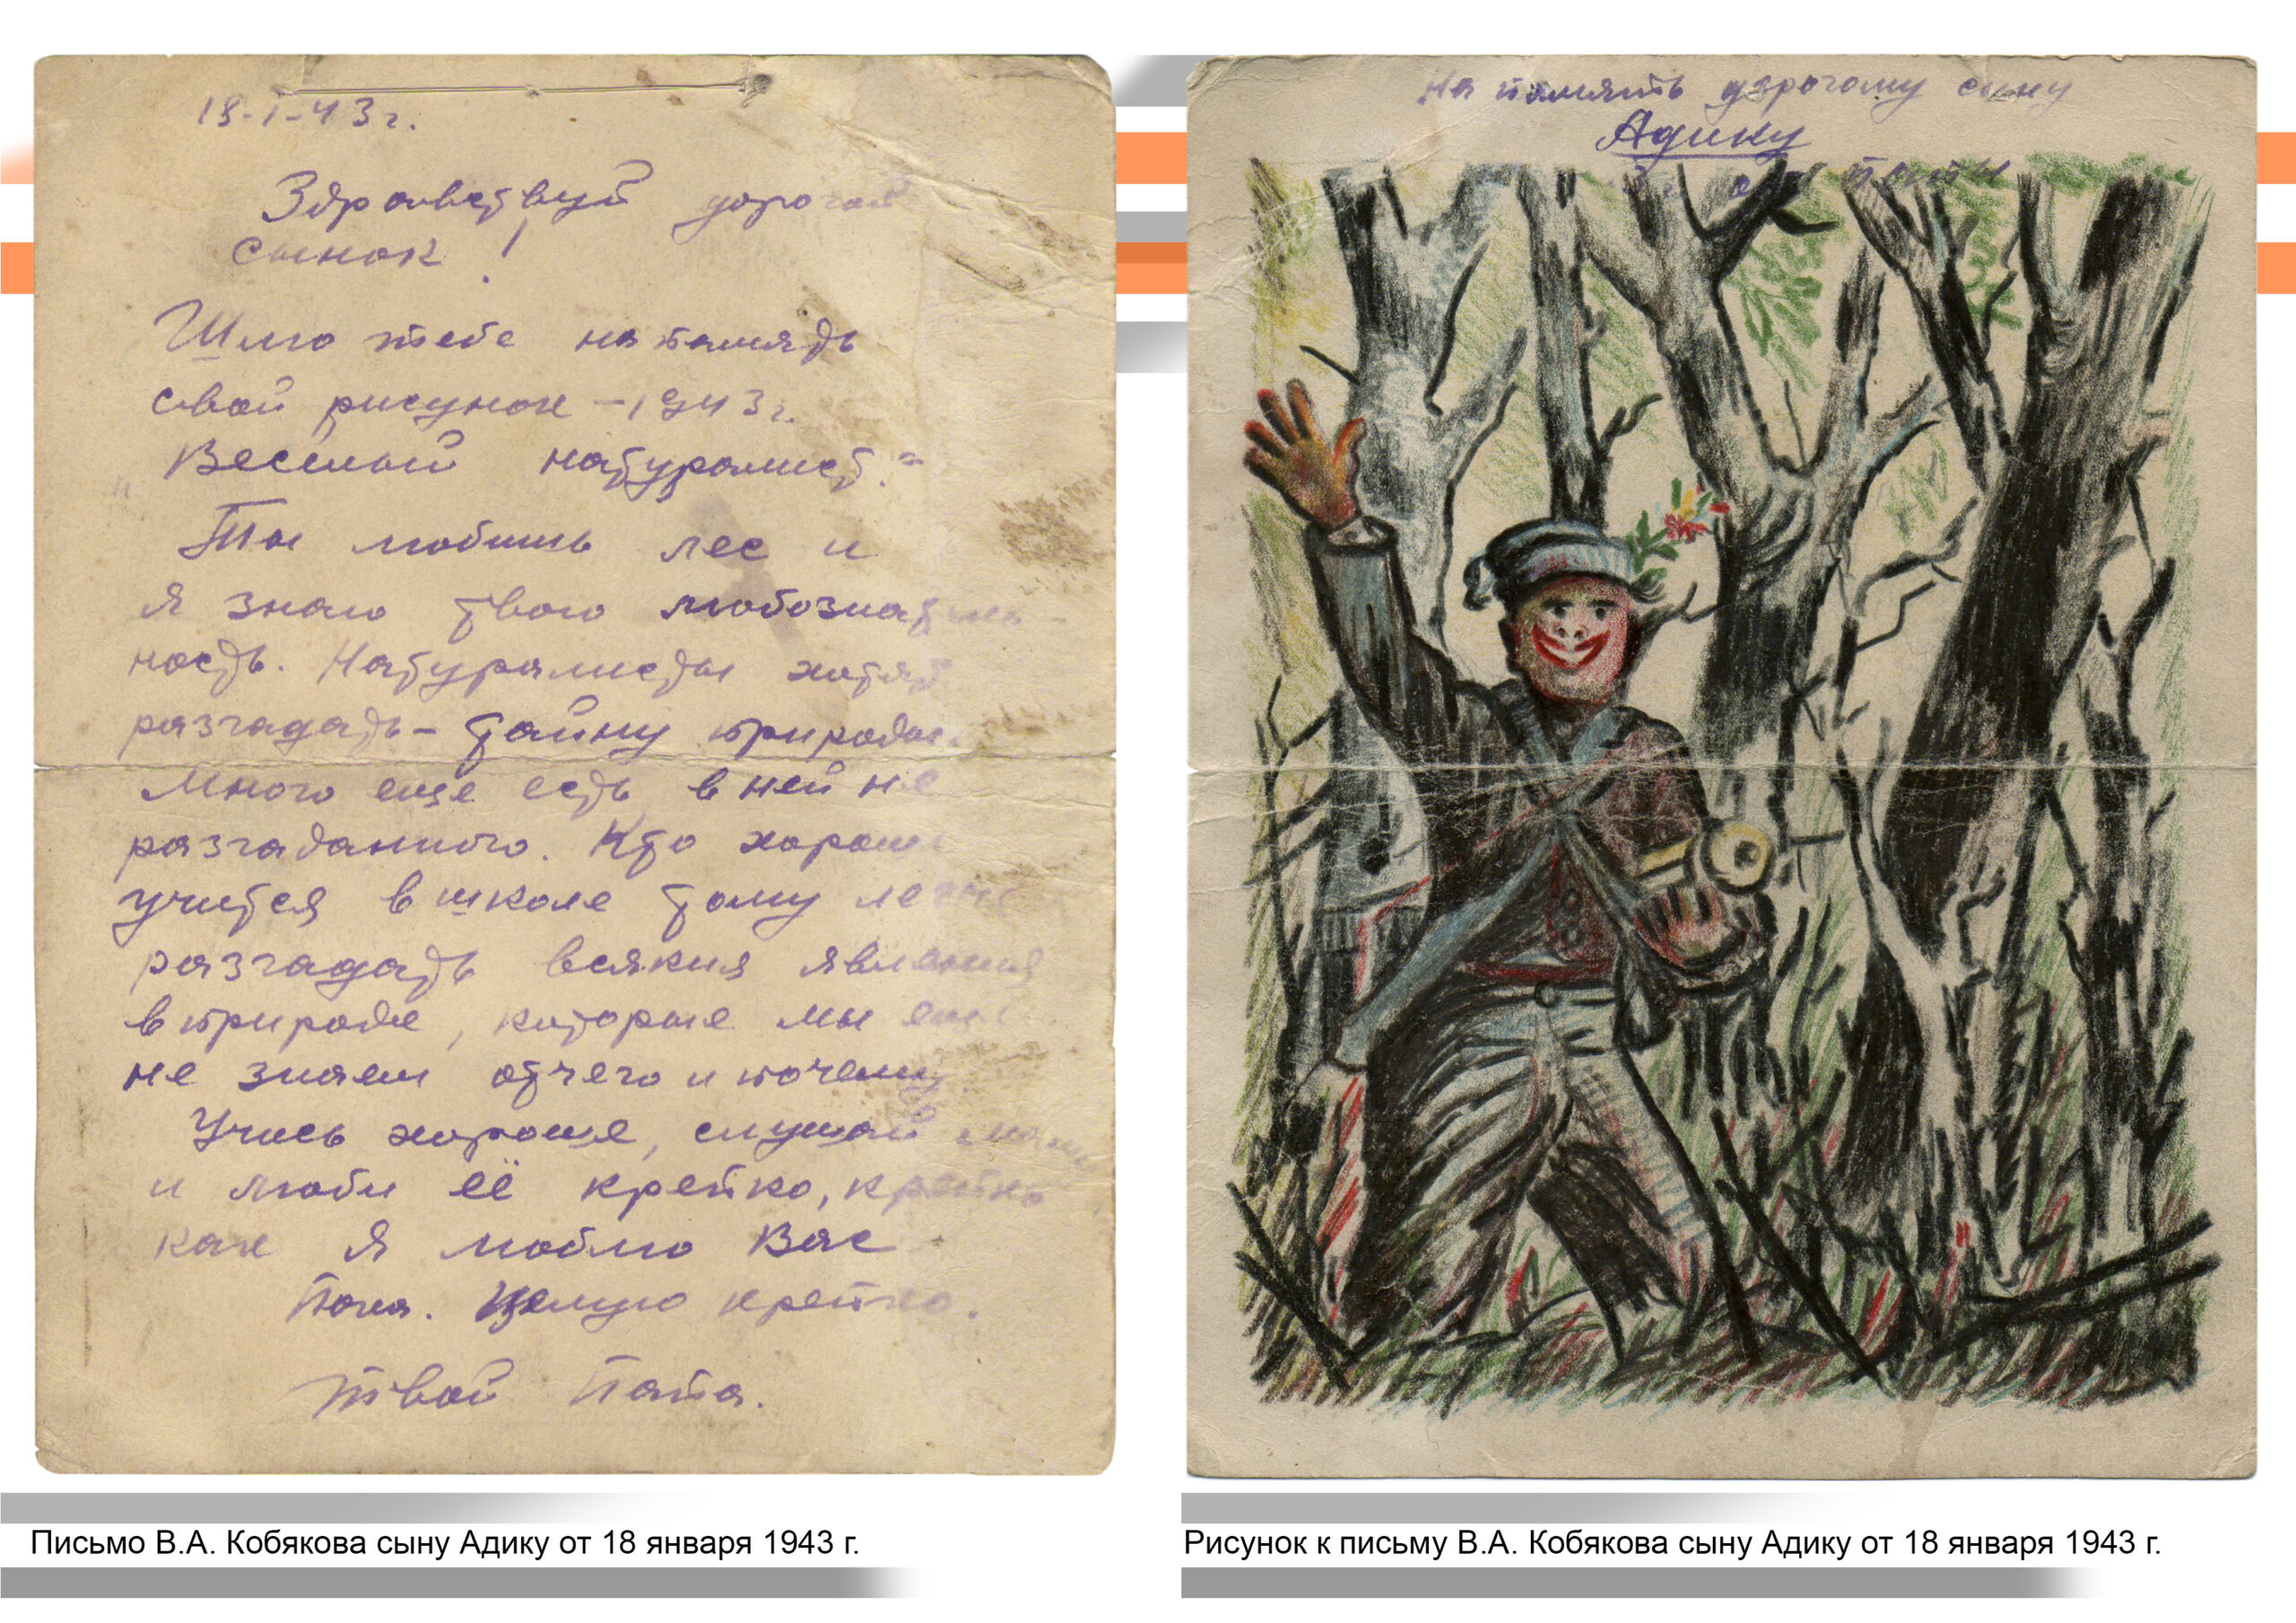 18-I-43г.
Здравствуй дорогой
сынок!
Шлю тебе на память
свой рисунок - 1943г.
"Веселый натуралист."
Ты любишь лес и
я знаю твою любознатель-
ность. Натуралисты хотят
разгадать - тайну природы.
Много еще есть в ней не
разгаданного. Кто хорошо
учится в школе тому легче
разгадать всякия явления
в природе, которые мы еще
не знаем отчего и почему
Учись хорошо, слушай маму
и люби её крепко, крепко
как я люблю Вас
Пока. Целую крепко.
Твой Папа.
Письмо В.А. Кобякова сыну Адику от 18 января 1943 г.
На память дорогому сыну
Адику
от папы
Рисунок к письму В.А. Кобякова сыну Адику от 18 января 1943 г.